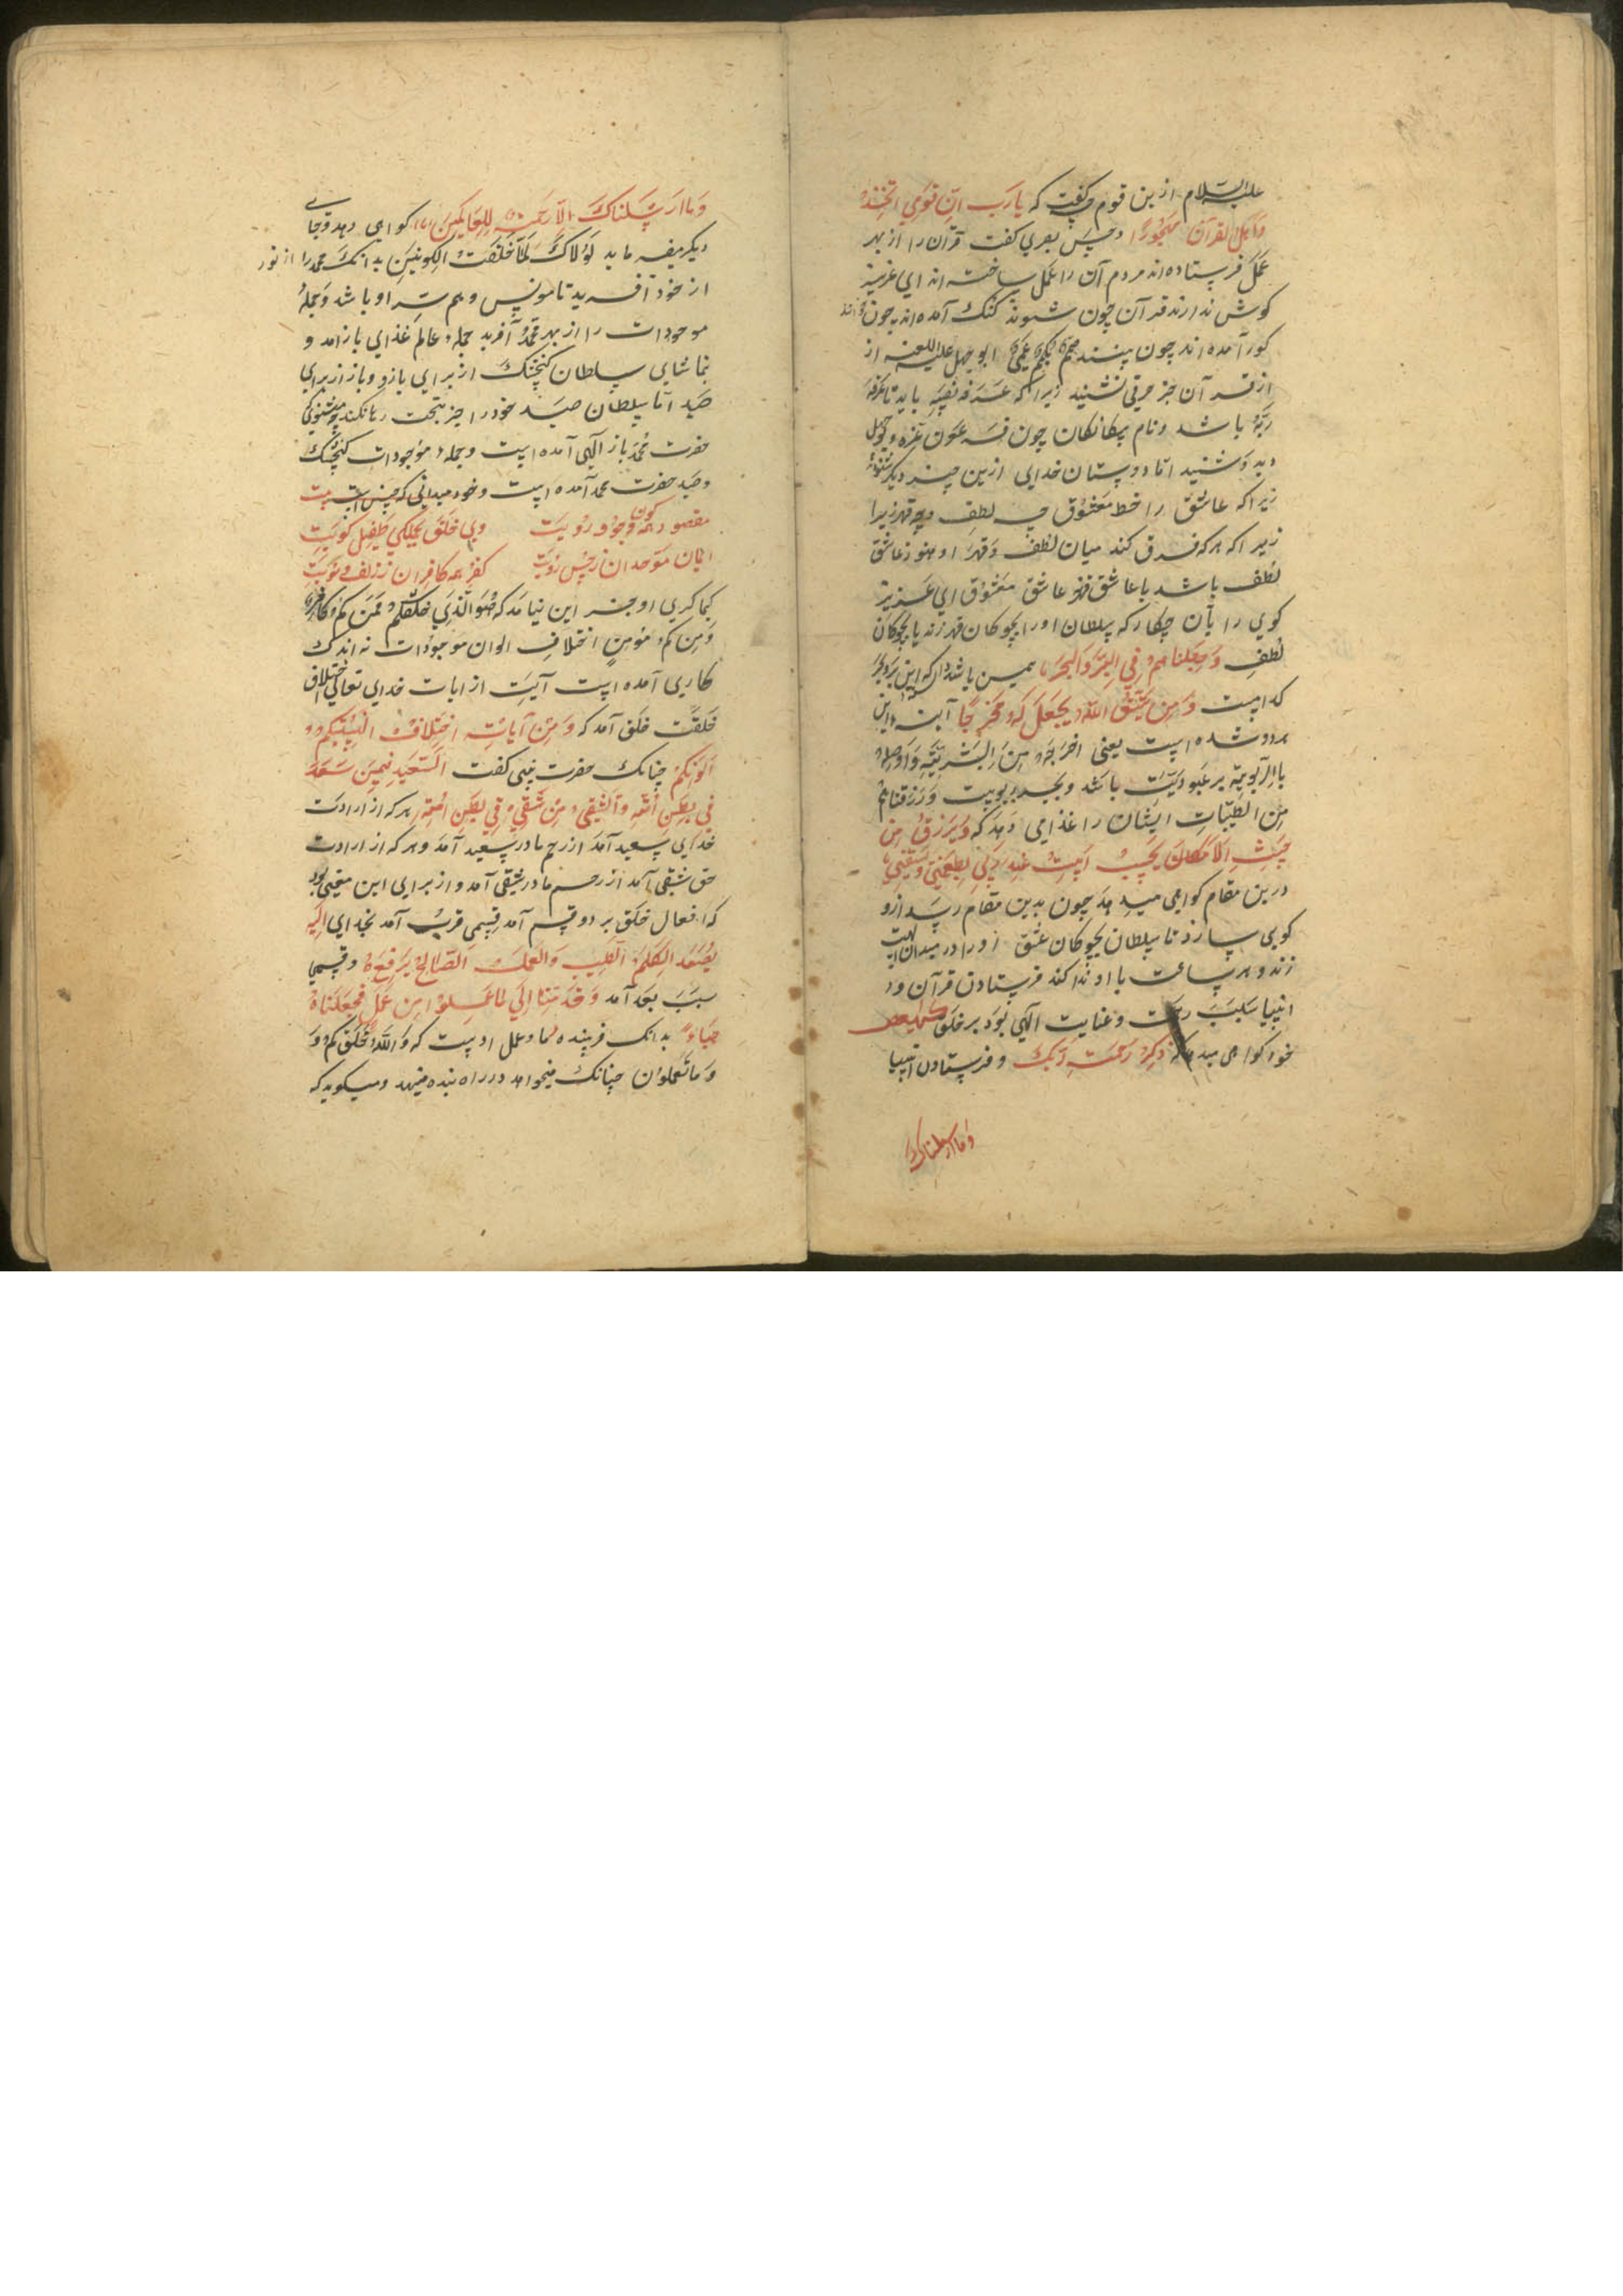 علیه السلام ازین قوم گفت که یا رب ان قومی اتخذوا
هذا القرآن مهجورا و حسن بصری گفت قرآن را از بهر
عمل فرستاده اند مردم آن را عمل ساخته اند ای عزیز
کوش ندارند قرآن چون شنوند کنک آمده اند چون خوانند
کور آمده اند چون بینند صم بکم عمی ابو جهل علیه اللعنه از
از قرآن جز حرفی نشنید زیرا که عرف نفسه باید تا عرف
ربه باشد و نام بیکانکان چون فرعون غره و بوجهل
دید و شنید اما دوستان خدایی ازین چیز دیکر شنوند
زیرا که عاشق را خط معشوق چه لطف و چه قهر زیرا
زیرا که هر که فرق کند میان لطف و قهر او هنوز عاشق
لطف باشد یا عاشق قهر عاشق معشوق ای عزیز
کوی را بآن چکار که سلطان او را بچوکان قهر زند یا بچوکان
لطف و حملناهم فی البر والبحر همین باشد که این بر و بحر
کدامست و من یتق الله یجعل له مخرجا آینه این
هر دو شده است یعنی اخرجه من البشریة و اوصله
بالربوبیة بر عبودیت باشد و بحر ربوبیت و رزقناهم
من الطیبات ایشان را غذا می دهد که و یرزقه من
حیث لا یحتسب ابیت عند ربی یطعمنی و یسقینی
درین مقام کواهی میدهد چون بدین مقام رسد ازو
کویی سازد تا سلطان بچوکان عشق او را در میدان
زند و هر ساعت با او ندا کند فرستادن قرآن و
انبیا سبب رحمت و عنایت الهی بود بر خلق کهیعص
خود کواهی میدهد که ذکر رحمة ربک و فرستادن انبیا
وما ارسلناک
وما ارسلناک الا رحمة للعالمین کواهی دهد و جای
دیکر میفرماید لولاک لما خلقت الکونین بدانک محمد را از نور
از خود آفرید تا مونس و هم سر او باشد و جمله
موجودات را از بهر محمد آفرید جمله عالم غذای باز آمد و
تماشای سلطان کنجشک از برای بازو و باز از برای
صید اما سلطان صید خود را جز بتحت رها نکند
حضرت محمد باز الهی آمده است و جمله موجودات کنجشک
و صید حضرت محمد آمده است و خود میدانی که چنین است بیت
مقصود همه کون وجود رویت وی خلق بجملکی طفیل کویت
ایمان موحدان ز حسن رویت کفر همه کافران ز زلف و مویت
کماکری او جز این نیامد که هو الذی خلقکم فمنکم کافر
و منکم مؤمن اختلاف الوان موجودات نه اندک
کاری آمده است آیت از ایات خدای تعالی اختلاف
خلقت خلق آمد که و من آیاته اختلاف السنتکم و
الوانکم چنانک حضرت نبی کفت السعید من سعد
فی بطن امه والشقی من شقی فی بطن امه هر که از ارادت
خدای سعید آمد از رحم مادر سعید آمد و هر که از ارادت
حق شقی آمد از رحم مادر شقی آمد و از برای این معنی بود
که افعال خلق بر دو قسم آمد قسمی قربت آمد بخدای الیه
یصعد الکلم الطیب والعمل الصالح یرفعه و قسمی
سبب بعد آمد و قدمنا الی ما عملوا من عمل فجعلناه
هباء بدانک فریننده ما و عمل اوست که والله خلقکم و
و ما تعملون چنانک میخواهد در راه بنده مینهد و میکوید که